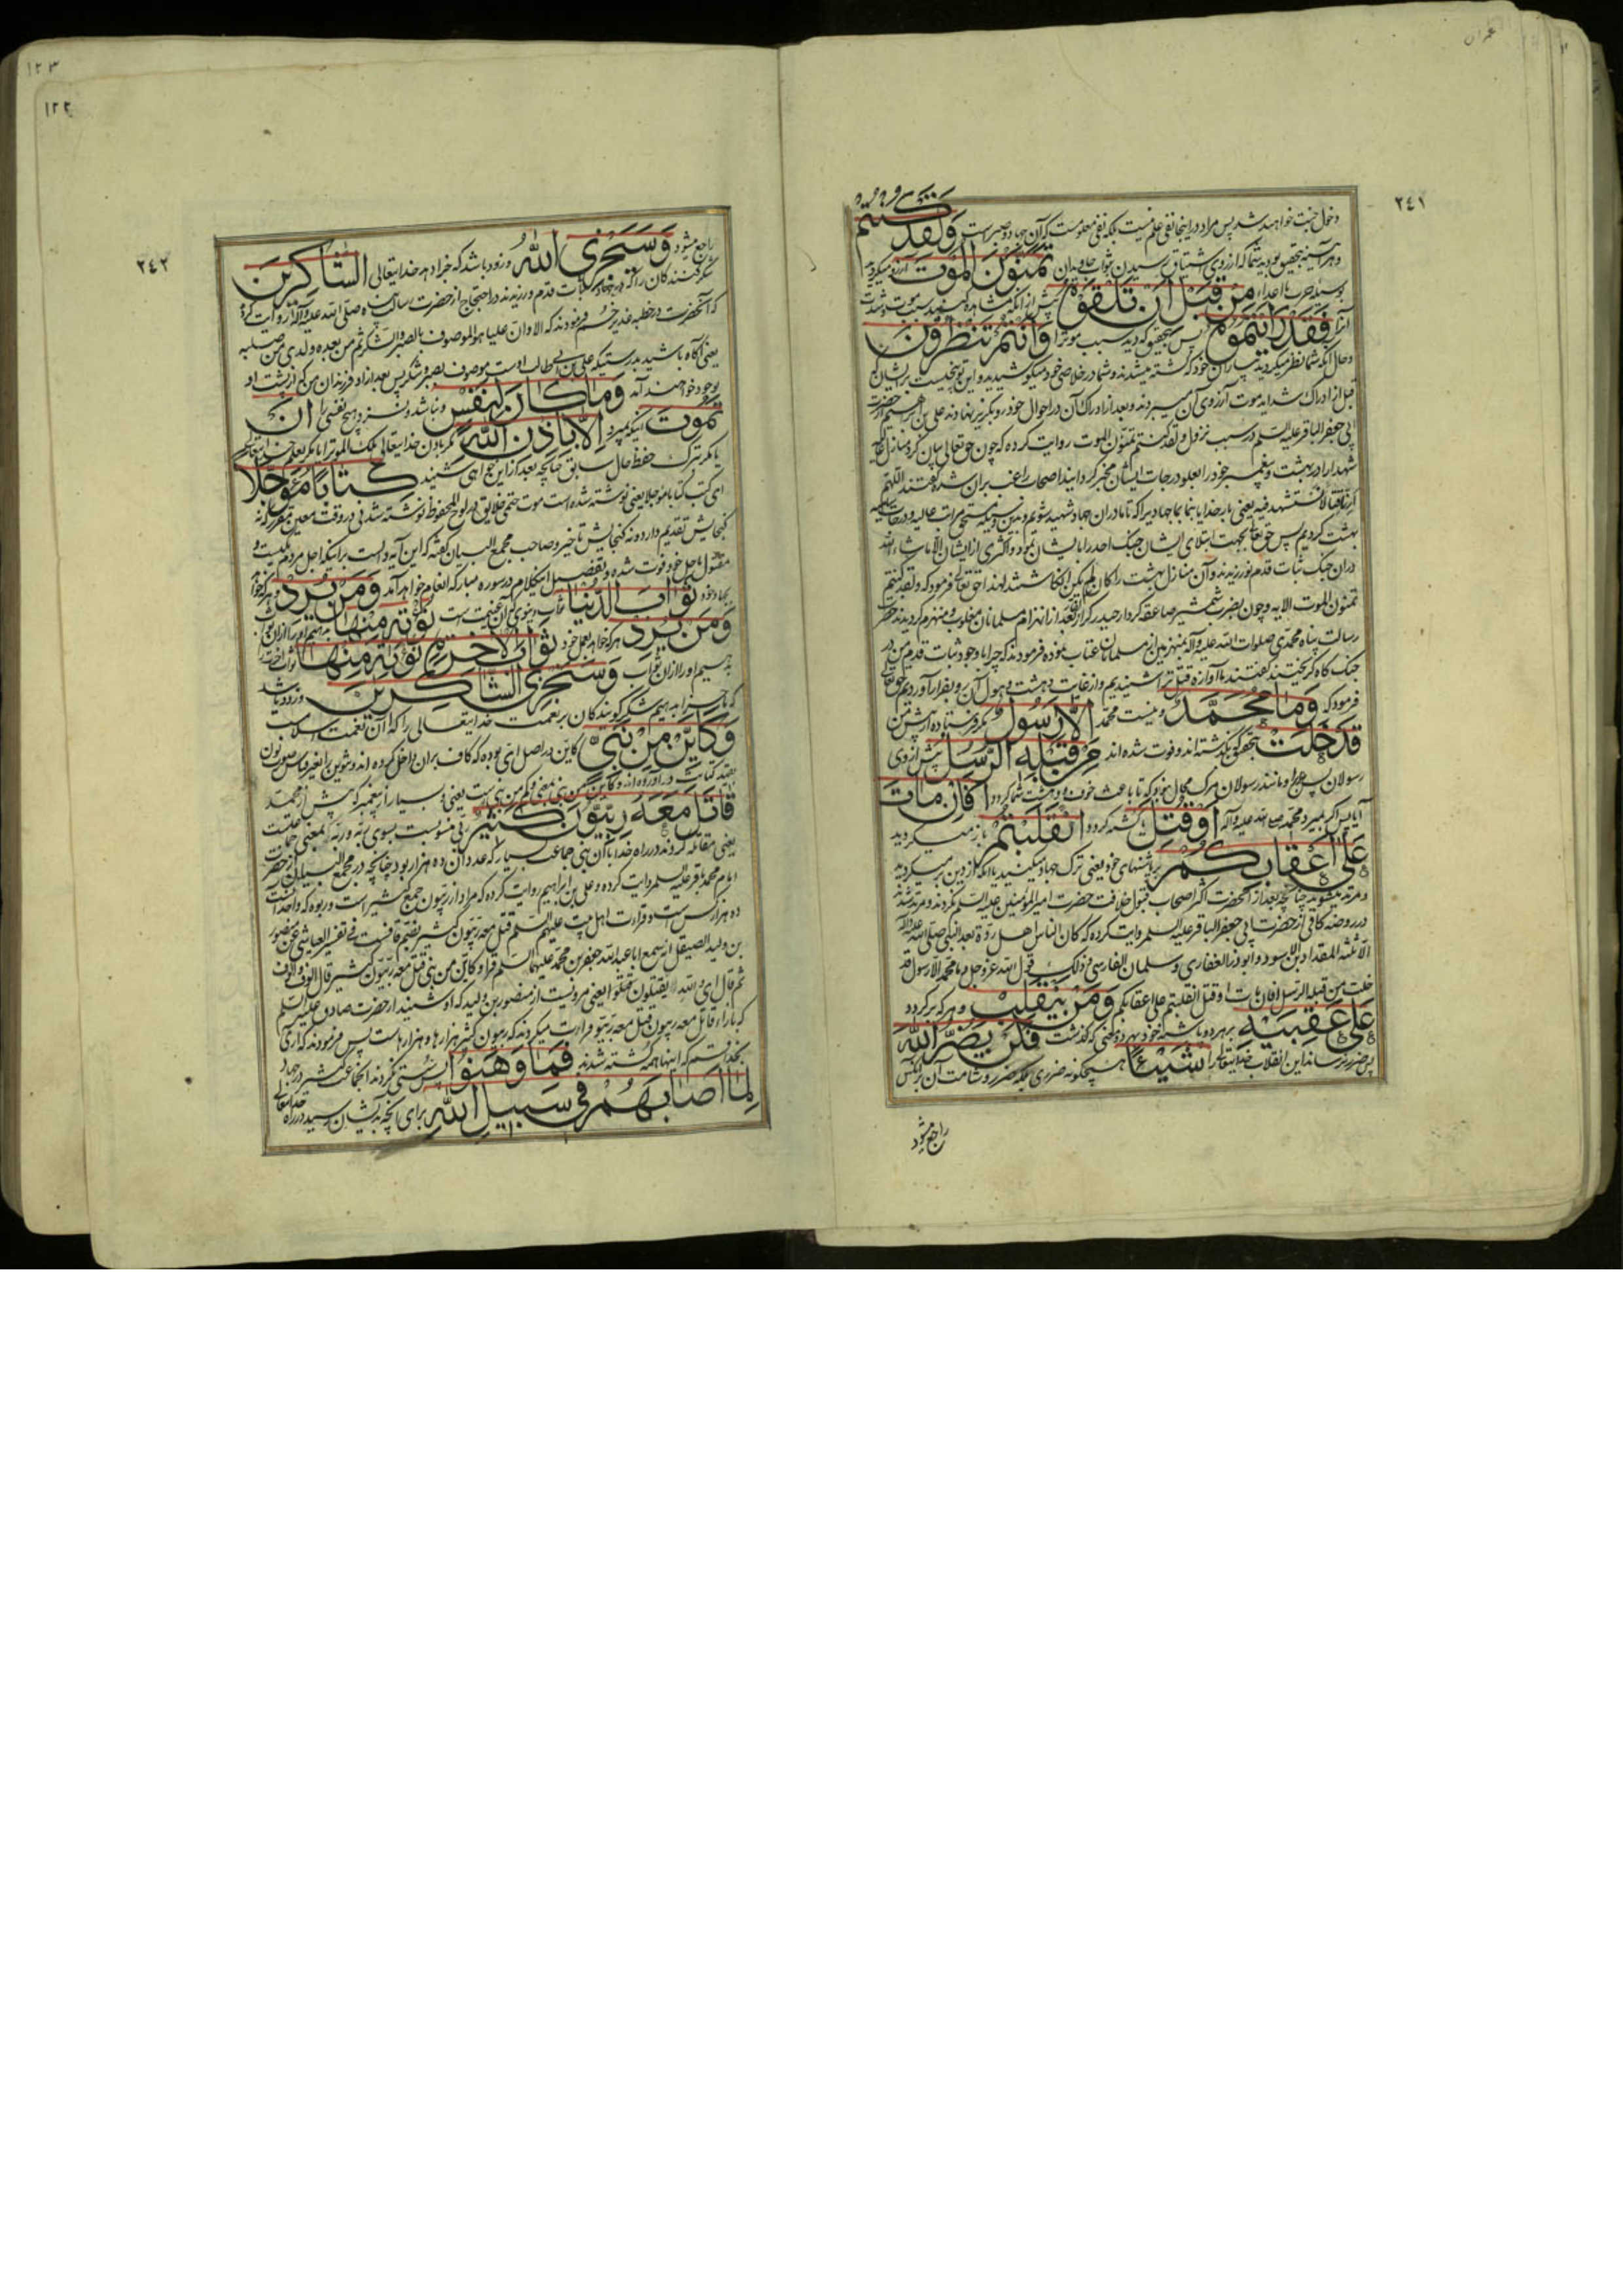 عمران
٢٤١
دخول جنت خواهند شد پس مراد در اینجا نفی علم نیست بلکه نفی معلومست که آن جهاد و صبر است وَلَقَدْ كُنْتُمْ
و هر آینه بتحقیق بودید شما که از روی اشتیاق رسیدن بثواب جاویدان تَمَنَّوْنَ الْمَوْتَ آرزو میکردید
بوسیله حرب با اعدا مِنْ قَبْلِ أَنْ تَلْقَوْهُ پیش از آنکه مشاهده کنید سبب موت و شدت
آنرا فَقَدْ رَأَيْتُمُوهُ پس بتحقیق که دیدید سبب موترا وَأَنْتُمْ تَنْظُرُونَ
و حال آنکه شما نظر میکردید بیاران خود که کشته میشدند و شما در خلاصی خود میکوشیدید و این توبیخست بر ایشان که
قبل از ادراک شداید موت آرزوی آن میبردند و بعد از ادراک آن در احوال خود رو بگریز نهادند علی بن ابراهیم از حضرت
ابی جعفر الباقر علیه السلم در سبب نزول و لقد کنتم تمنون الموت روایت کرده که چون حق تعالی بیان کرد منازل عالیه
شهدا را در بهشت و پیغمبر خود را بعلو درجات ایشان مخبر گردانید اصحاب راغب بران شده گفتند اللهم
ارنا قتالا نستشهد فیه یعنی بار خدایا بنما بما جهادیرا که تا ما دران جهاد شهید شویم و بدین وسیله مستحق مراتب عالیه و درجات
بهشت گردیم پس حق تعالی بجهت ابتلای ایشان جنک احد را بایشان نمود و اکثری از ایشان الا ماشاء الله
دران جنک ثبات قدم نورزیدند و آن منازل بهشت را کان لم یکن انکاشتند لهذا حق تعالی فرمود که و لقد کنتم
تمنون الموت الایه و چون بضرب شمشیر صاعقه کردار حیدر کرار بعد از انهزام مسلمانان مغلوب و منهزم کردیدند حضرت
رسالت پناه محمدی صلوات الله علیه و آله بمنهزمین از مسلمانان عتاب نموده فرمودند که چرا با وجود ثبات قدم من در
جنک گاه گریختید گفتند ما آوازه قتل ترا شنیدیم و از غایت دهشت و هول آن رو بفرار آوردیم حق تعالی
فرمود که وَمَا مُحَمَّدٌ و نیست محمد إِلَّا رَسُولٌ مگر فرستاده از پیش من
قَدْ خَلَتْ بتحقیق که گذشته اند و فوت شده اند مِنْ قَبْلِهِ الرُّسُلُ پیش از وی
رسولان پس چرا او مانند رسولان مرک محال بود که تا باعث خوف و دهشت شما کردد أَفَإِنْ مَاتَ
آیا پس اگر بمیرد محمد صلی الله علیه و آله أَوْ قُتِلَ یا کشته کردد انْقَلَبْتُمْ باز میکردید
عَلَى أَعْقَابِكُمْ بر پاشنهای خود یعنی ترک جهاد میکنید یا آنکه از دین برمیکردید
و مرتد میشوید چنانچه بعد از آنحضرت اکثر اصحاب قبول خلافت حضرت امیر المؤمنین علیه السلم نکردند و مرتد شدند
در روضه کافی از حضرت ابی جعفر الباقر علیه السلم روایت کرده که کان الناس اهل ردة بعد النبی صلی الله علیه و آله
الا ثلثة المقداد بن الاسود و ابو ذر الغفاری و سلمان الفارسی و ذلک قول الله عز و جل و ما محمد الا رسول قد
خلت من قبله الرسل افان مات او قتل انقلبتم علی اعقابکم وَمَنْ يَنْقَلِبْ و هر که برکردد
عَلَى عَقِبَيْهِ بر هر دو پاشنه خود بهر دو معنی که گذشت فَلَنْ يَضُرَّ اللَّهَ
پس ضرر نرساند این انقلاب خدایتعالی را شَيْئًا هیچکونه ضرری بلکه ضرر و شامت آن بر نفس
راجع میشود
١٢٣
١٢٢
٢٤٢
راجع میشود وَسَيَجْزِي اللَّهُ و زود باشد که جزا دهد خدایتعالی الشَّاكِرِينَ
شکر کنندکان را که در جهاد ثبات قدم ورزیدند در احتجاج از حضرت رسالت پناه صلی الله علیه و آله روایت کرده
که آنحضرت در خطبه غدیر خم فرمودند که الا و ان علیا هو الموصوف بالصبر و الشکر ثم من بعده ولدی من صلبه
یعنی آگاه باشید بدرستیکه علی بن ابی طالب اوست موصوف بصبر و شکر پس بعد از او فرزندان من که از پشت او
بوجود خواهند آمد وَمَا كَانَ لِنَفْسٍ و نباشد و نسزد هیچ نفسی را أَنْ
تَمُوتَ اینکه بمیرد إِلَّا بِإِذْنِ اللَّهِ مگر باذن خدایتعالی ملک الموترا یا مگر بعلم خدایتعالی
یا مگر بترک حفظ حال سابق چنانچه بعد از این خواهی شنید كِتَابًا مُؤَجَّلًا
ای کتب کتابا مؤجلا یعنی نوشته شده است موت حتمی خلایق در لوح محفوظ نوشته شدنی در وقت معین مقرر که نه
کنجایش تقدیم دارد و نه کنجایش تاخیر و صاحب مجمع البیان گفته که این آیه دالست بر اینکه اجل مردم یکیست و
مقتول باجل خود فوت شده و تفضیل اینکلام در سوره مبارکه انعام خواهد آمد وَمَنْ يُرِدْ و هر که خواهد
بجهاد خود ثَوَابَ الدُّنْيَا ثواب دنیوی که آن غنیمت است نُؤْتِهِ مِنْهَا بدهیم او را از آن ثواب
وَمَنْ يُرِدْ هر که خواهد بعمل خود ثَوَابَ الْآخِرَةِ نُؤْتِهِ مِنْهَا ثواب آخرت
بدهیم او را از ان ثواب وَسَنَجْزِي الشَّاكِرِينَ و زود باشد
که جزا بدهیم شکر گویندکان بر نعمت خدایتعالی را که آن نعمت اسلامست
وَكَأَيِّنْ مِنْ نَبِيٍّ کاین در اصل ای بوده که کاف بران داخل کرده اند و تنوین را بغیر قیاس صورت نون
بقید کتابت درآورده اند و کاین من نبی بمعنی و کم من نبی است یعنی و بسیار از پیغمبر که پیش از محمد
قَاتَلَ مَعَهُ رِبِّيُّونَ كَثِيرٌ ربی منسوبست بسوی ربه و ربه بمعنی جماعتست
یعنی مقاتله کردند در راه خدا با آن نبی جماعت بسیار که عدد آن ده هزار بود چنانچه در مجمع البیان از حضرت
امام محمد باقر علیه السلم روایت کرده و علی بن ابراهیم روایت کرده که مراد از ربیون جمع کثیر است و ربوه که واحد آنست
ده هزار کس است و قراءت اهل بیت علیهم السلم قتل معه ربیون کثیر بضم قافست فی تفسیر العیاشی عن منصور
بن ولید الصیقل انه سمع ابا عبد الله جعفر بن محمد علیهما السلم قرا و کاین من نبی قتل معه ربیون کثیر قال الوف و الوف
ثم قال ای و الله یقتلون یعنی مرویست از منصور بن ولید که او شنید از حضرت صادق علیه السلم
که بازاء قاتل معه ربیون قتل معه ربیون قراءت میکردند که ربیون کثیر هزارها و هزارهاست پس فرمودند که آری
بخدا قسم که اینها همه کشته شدند فَمَا وَهَنُوا پس سستی نکردند انجماعت کثیر در جهاد
لِمَا أَصَابَهُمْ فِي سَبِيلِ اللَّهِ برای آنچه بدیشان رسید در راه خدایتعالی